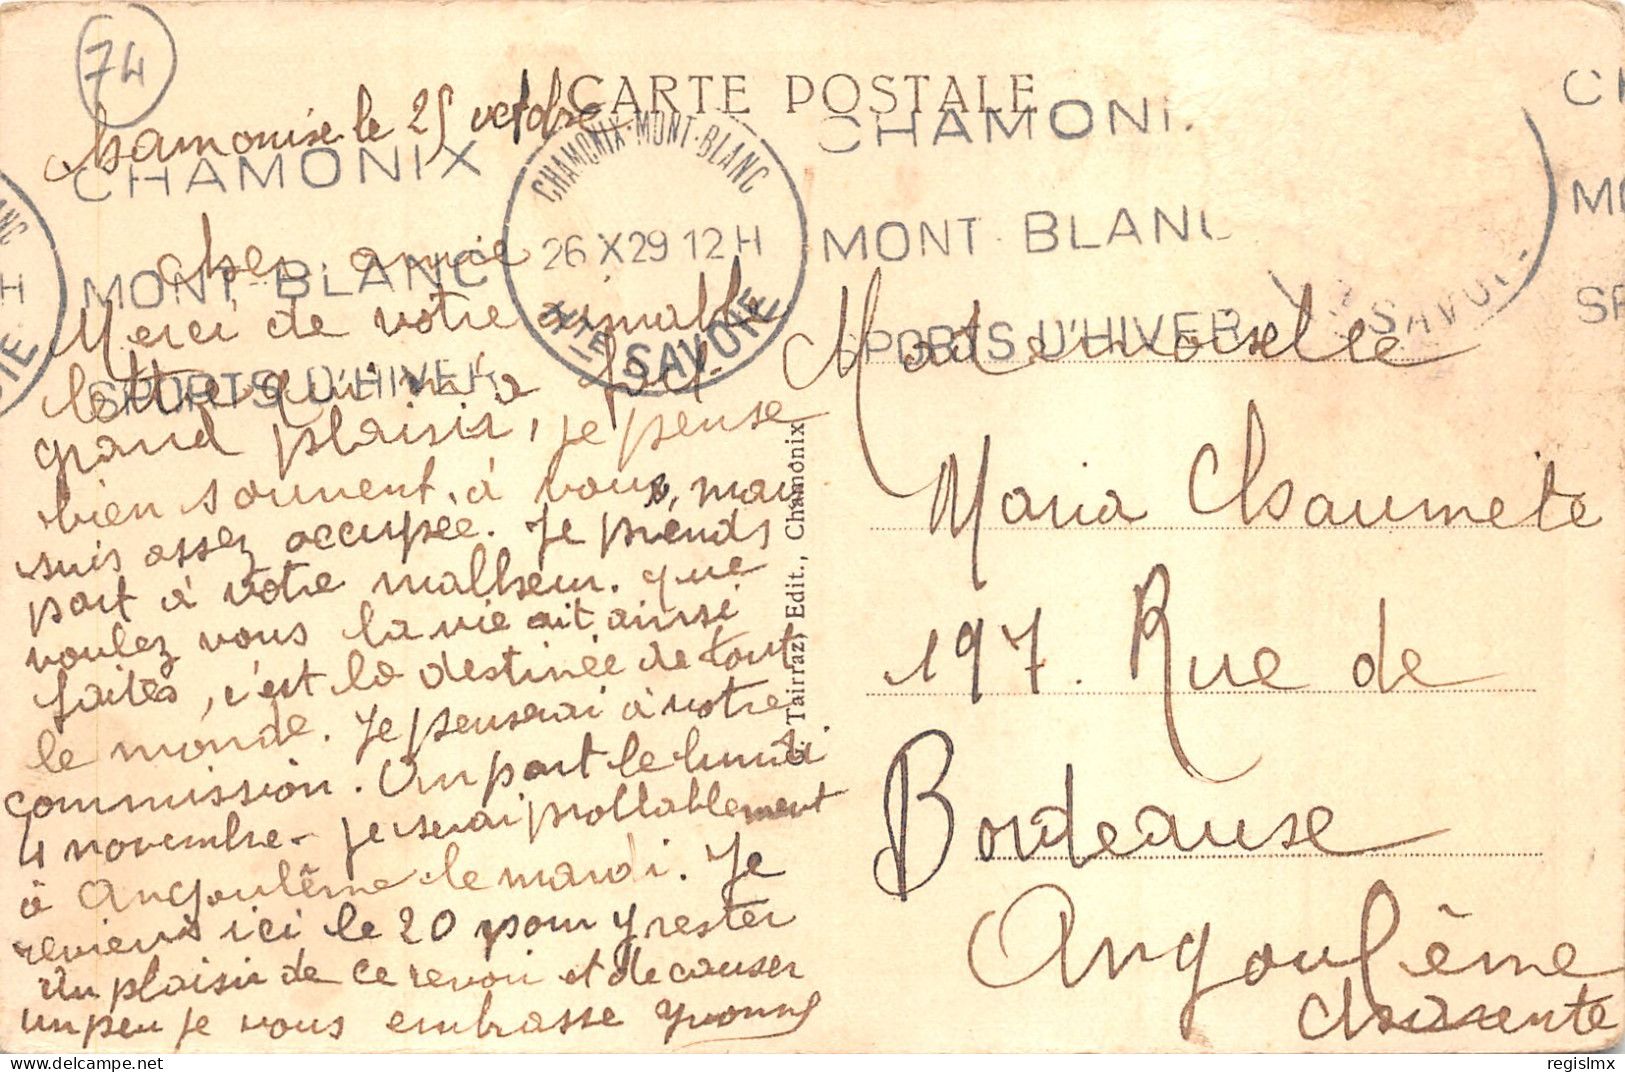 74
CARTE POSTALE
Chamonise le 25 octobre
CHAMONIX MONT-BLANC SPORTS D'HIVER
CHAMONIX-MONT-BLANC
26 X29 12H
HTE SAVOIE
CHAMONI
MONT-BLANC
SPORTS D'HIVER
SAVOIE
Cher amie
Merci de votre aimable
lettre qui m'a fait
grand plaisir, je pense
bien souvent, à vous, mais
suis assez occupée. Je prends
part à votre malheur. que
voulez vous la vie ait ainsi
faites, c'est la destinée de tout
le monde. Je penserai à votre
commission. On part le lundi
4 novembre - je serai probablement
à Angoulême le mardi. Je
reviens ici le 20 pour y rester
Un plaisir de ce revoir et de causer
un peu je vous embrasse Yvonne
G. Tairraz, Edit., Chamonix
Mademoiselle
Maria Chaumete
197. Rue de
Bordeause
Angoulême
Charente
regislmx